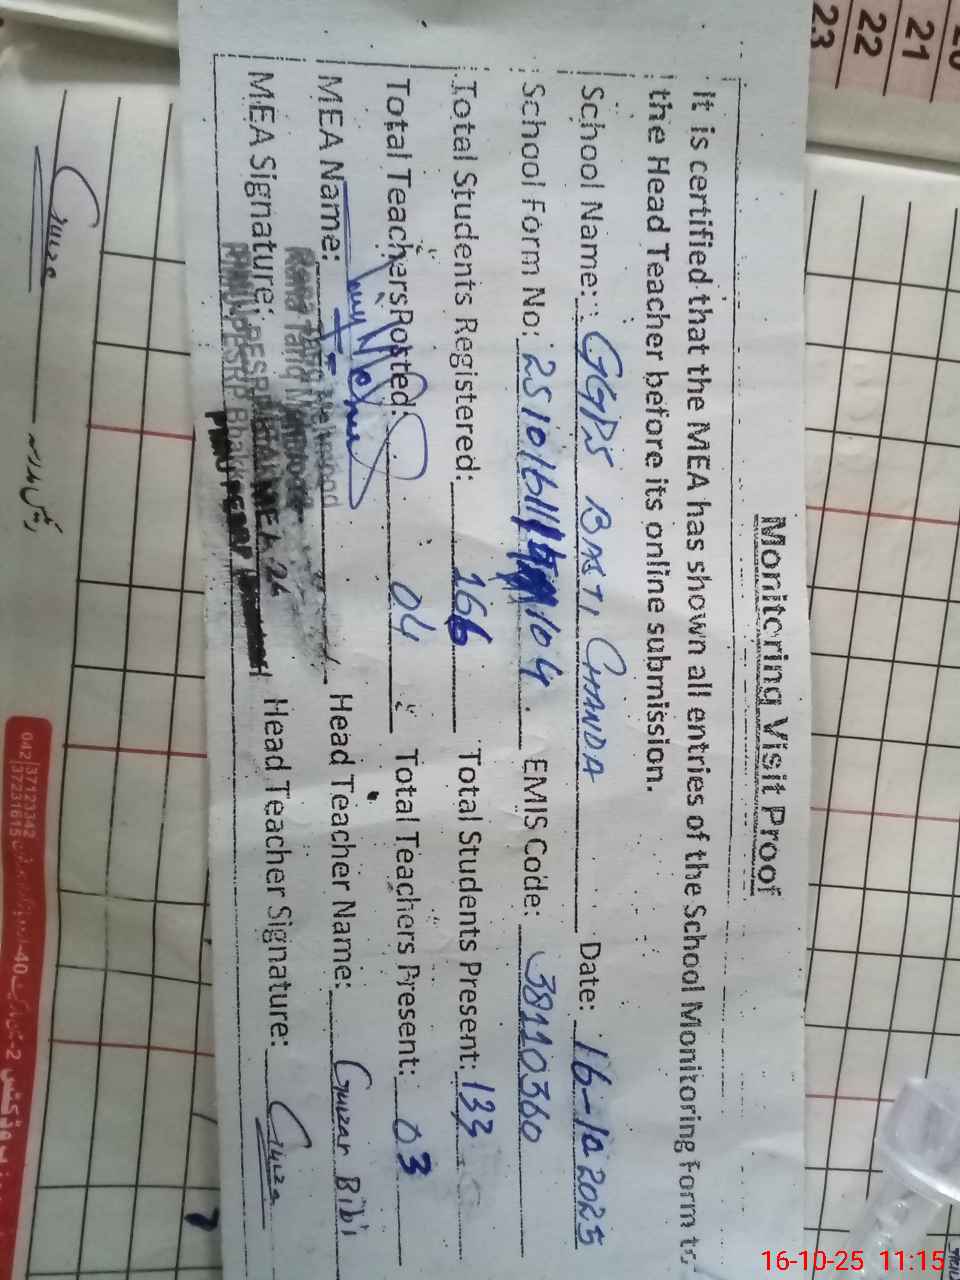 Monitoring Visit Proof
It is certified that the MEA has shown all entries of the School Monitoring Form to
the Head Teacher before its online submission.
School Name: GGPS BASTI CHANDA Date: 16-10 2025
School Form No: 25101611 104 EMIS Code: 38110360
Total Students Registered: 166 Total Students Present: 133
Total Teachers Posted: 04 Total Teachers Present: 03
MEA Name: Head Teacher Name: Gulzar Bibi
Rana Tariq Mehmood
MEA Signature: Head Teacher Signature:
PMIU PESRP Bhakkar
MEA 24
20
21
22
23
042|37123342
37231815
16-10-25 11:15